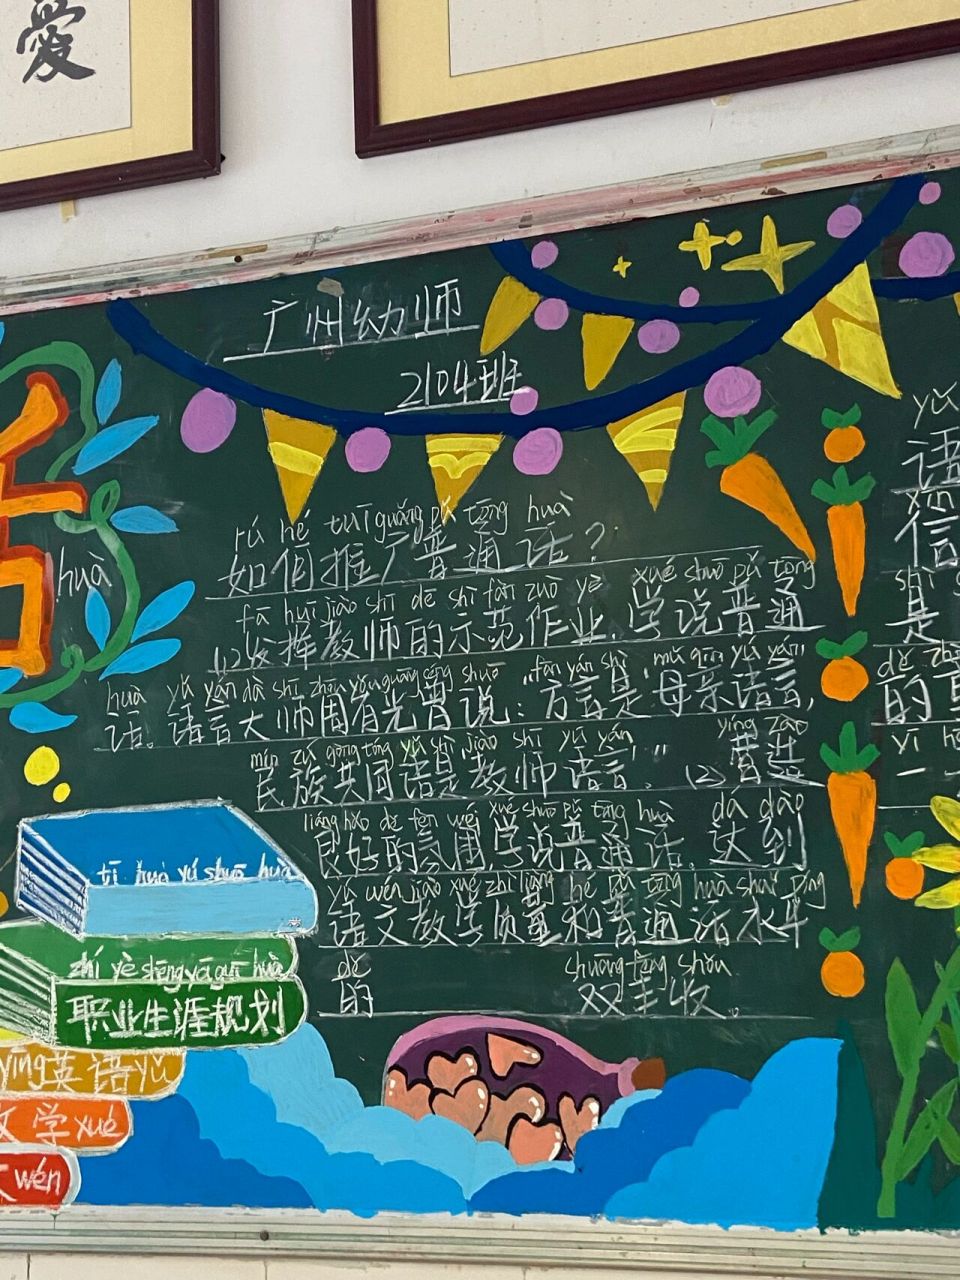 愛
广州幼师
2104班
huà
rú hé tuī guǎng pǔ tōng huà
如何推广普通话？
fā huī jiào shī de shì fàn zuò yè xué shuō pǔ tōng
(1)发挥教师的示范作业，学说普通
huà yǔ yán dà shī zhōu yǒu guāng céng shuō fān yán shì mǔ qīn yǔ yán
话。语言大师周有光曾说："方言是母亲语言，
mín zú gòng tóng yǔ shì jiào shī yǔ yán yíng zào
民族共同语是教师语言。"(2)营造
liáng hǎo de fēn wéi xué shuō pǔ tōng huà dá dào
良好的氛围学说普通话，达到
yǔ wén jiào xué zhì liàng hé pǔ tōng huà shuǐ píng
语文教学质量和普通话水平
de shuāng fēng shōu
的 双丰收。
zhí yè shēng yá guī huà
职业生涯规划
yīng英语yǔ
学xué
wén
yǔ
语
信
是
的
yī
一